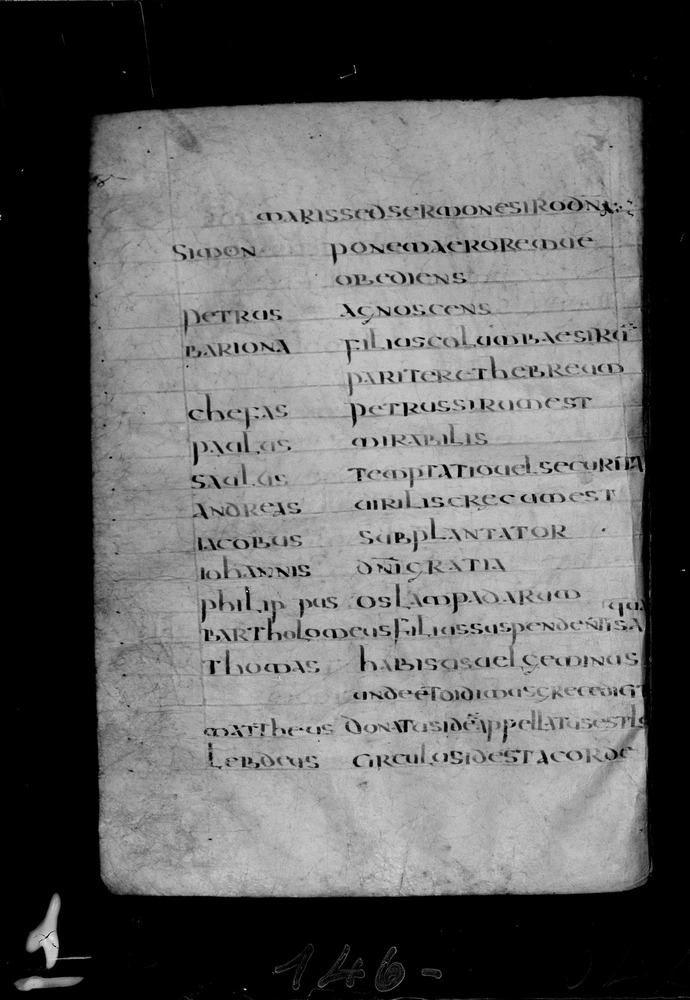 MARIS SED SERMONE SIRO DN̄A:
SIMON PONE MAEROREM UE
OBEDIENS
PETRUS AGNOSCENS
BARIONA FILIUS COLUMBAE SIRŪ
PARITER ET HEBREUM
CHEFAS PETRUS SIRUM EST
PAULUS MIRABILIS
SAULUS TEMPTATIO UEL SECURITA
ANDREAS UIRILIS GRECUM EST
IACOBUS SUBPLANTATOR
IOHANNIS DN̄I GRATIA
PHILIPPUS OS LAMPADARUM
QUA
BARTHOLOMEUS FILIUS SUSPENDENTIS A
THOMAS HABISUS UEL GEMINUS
UNDE ET DIDIMUS GRECE DICIT
MATTHEUS DONATUS IDĒ APPELLATUS EST LE
LEBDEUS CIRCULUS ID EST A CORDE
1
146-